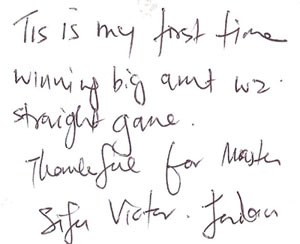 Tis is my first time
winning big amt wz
straight game.
Thankful for Master
Sifu Victor.